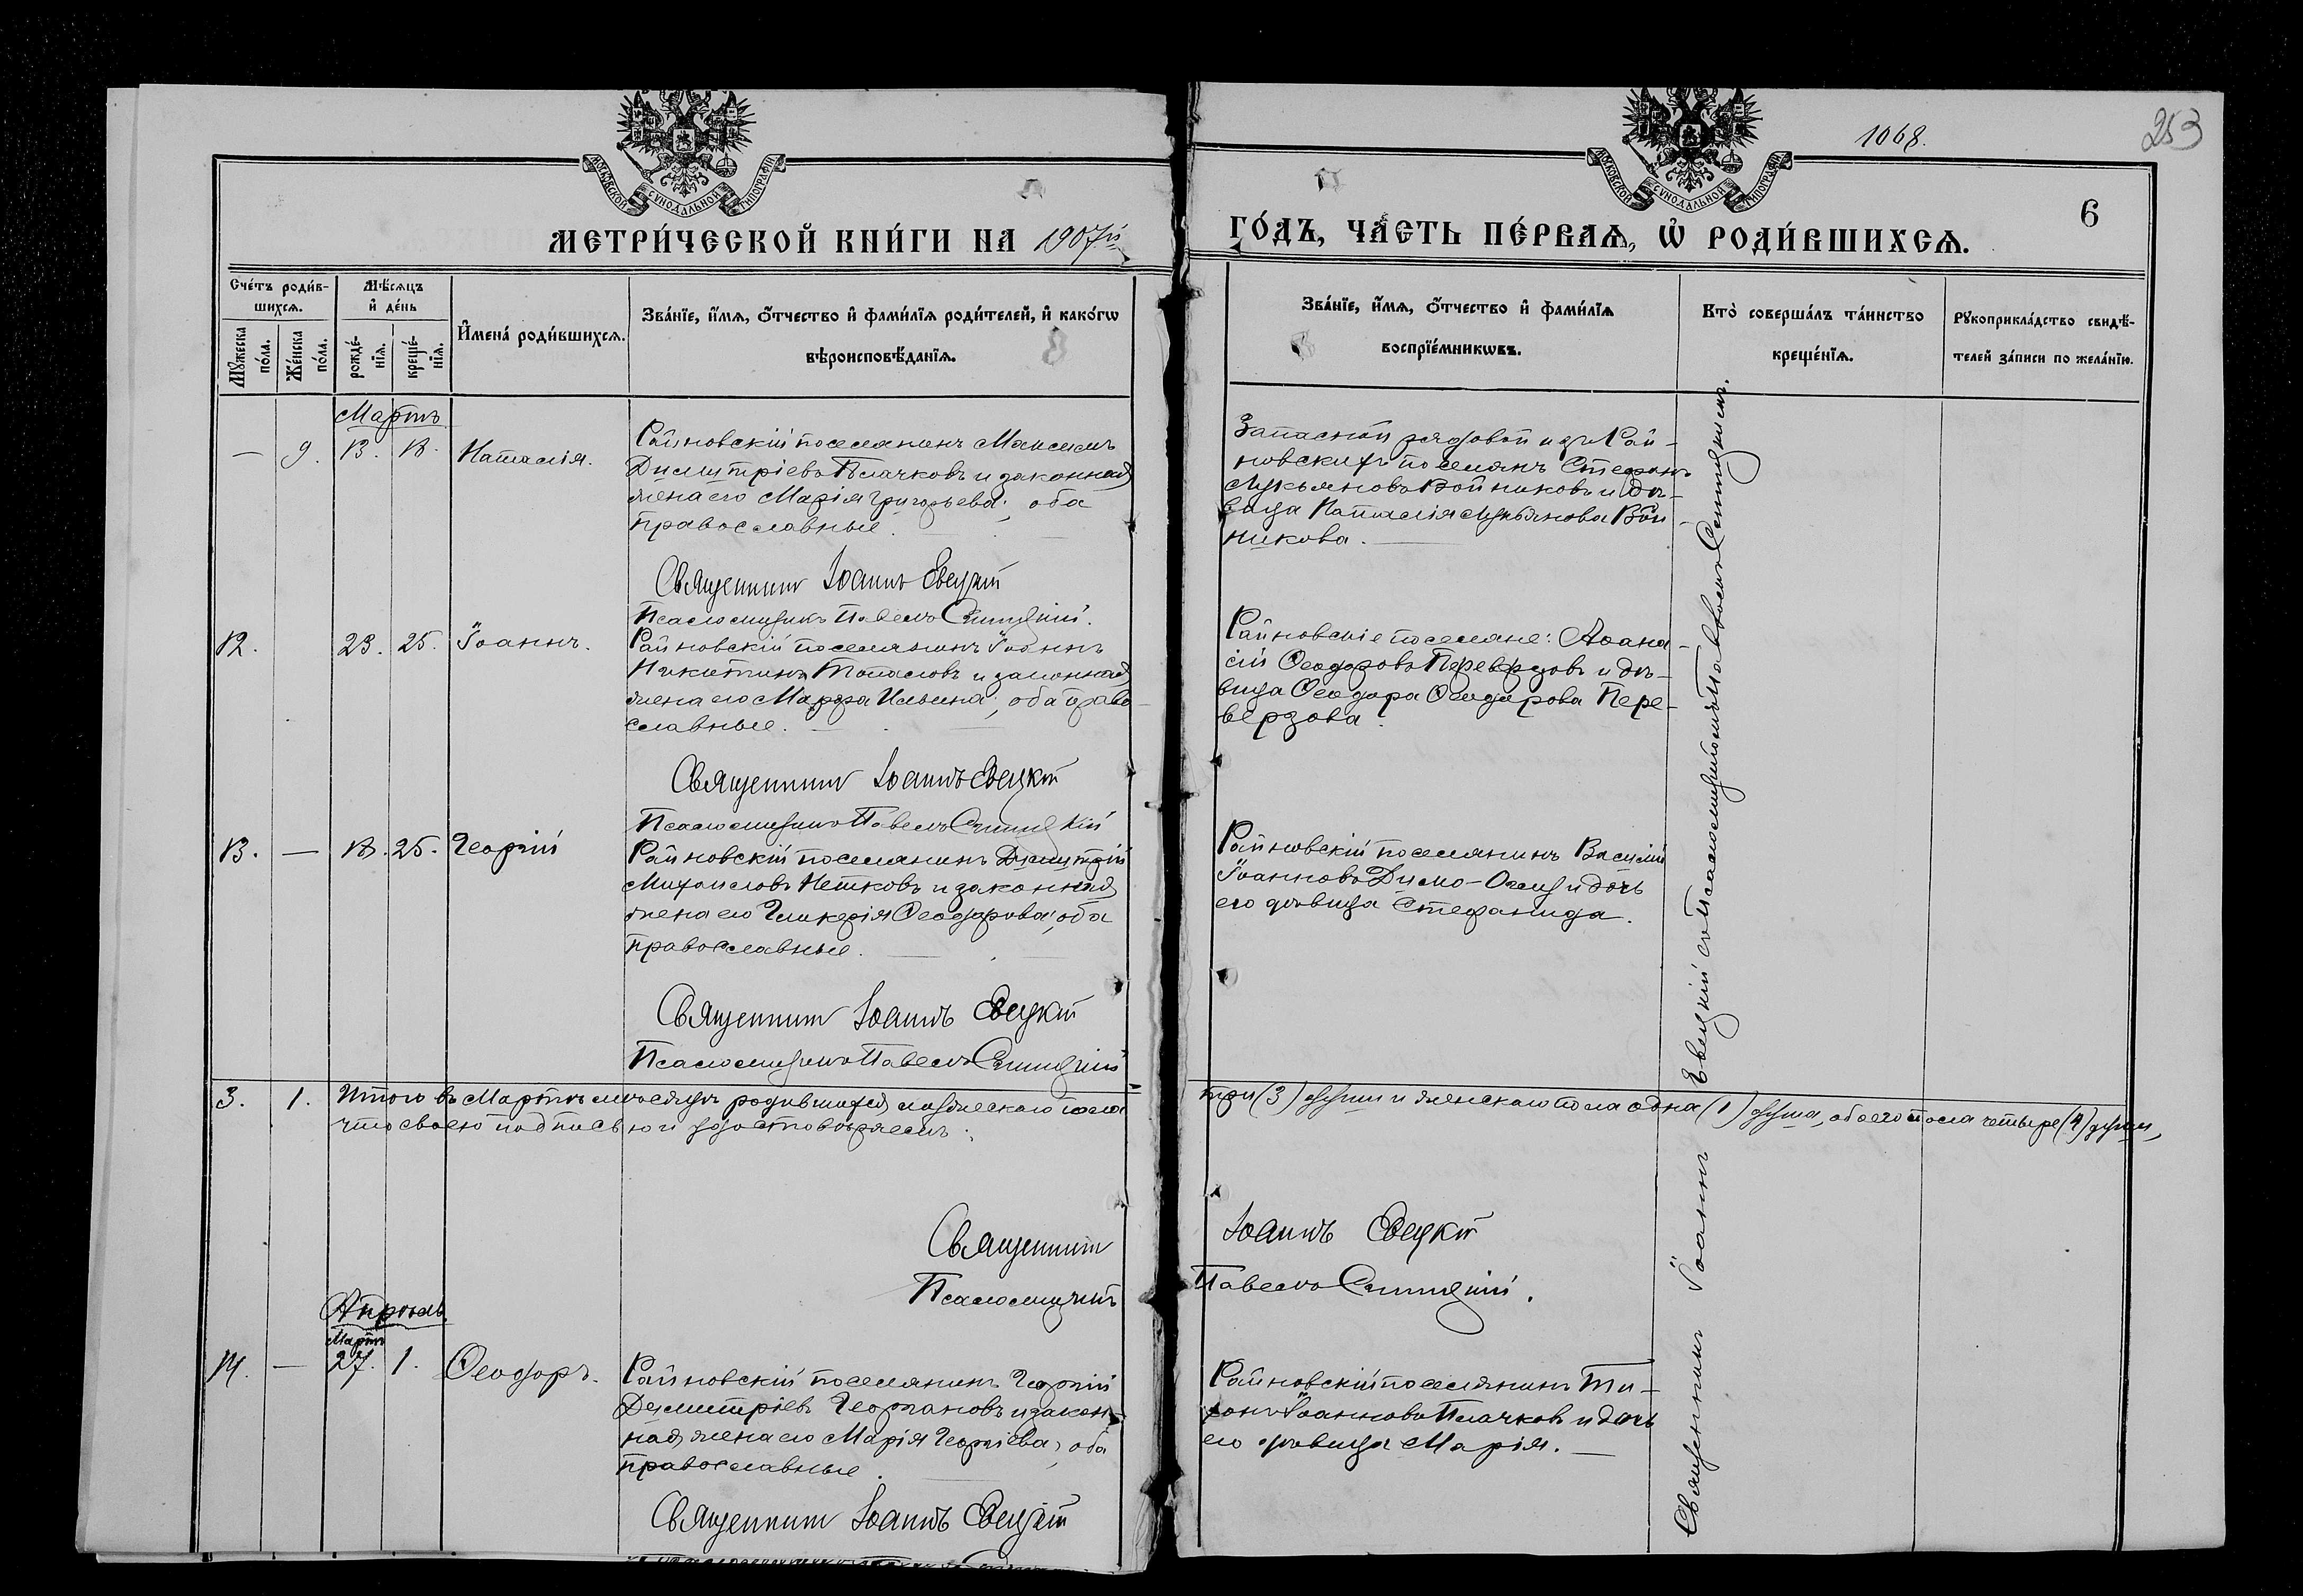 1068.
253
6
МОСКОВСКОЙ СѴНОДАЛЬНОЙ ТИПОГРАФІИ
МОСКОВСКОЙ СѴНОДАЛЬНОЙ ТИПОГРАФІИ
МЕТРИ́ЧЕСКОЙ КНИ́ГИ НА 1907й
ГО́ДЪ, ЧА́СТЬ ПЕ́РВАѦ, Ѡ҆ РОДИ́ВШИХСѦ.
Сче́тъ роди́в-
шихсѧ.
Мꙋ́жеска
по́ла.
Же́нска
по́ла.
Мѣ́сѧцъ
и҆ де́нь
рожде́-
нїѧ.
креще́-
нїѧ.
И҆мена̀ роди́вшихсѧ.
Зва́нїе, и҆́мѧ, ѻ҆́тчество и҆ фами́лїѧ роди́телей, и҆ како́гѡ
вѣроисповѣ́данїѧ.
Зва́нїе, и҆́мѧ, ѻ҆́тчество и҆ фами́лїѧ
воспрїе́мникѡвъ.
Кто̀ соверша́лъ та́инство
креще́нїѧ.
Рꙋкоприкла́дство свидѣ́-
телей за́писи по жела́нїю.
Мартъ
— 9. 13. 18. Наталія.
Райновскій поселянинъ Максимъ
Димитріевъ Плачковъ и законная
жена его Марія Григорьева; оба
православные.
Священникъ Іоаннъ Евецкій
Псаломщикъ Павелъ Синицкій.
Запасной рядовой изъ Рай-
новскихъ поселянъ Стефанъ
Лукьяновъ Войниковъ и дѣ-
вица Наталія Лукьянова Вой-
никова.
12. 23. 25. Іоаннъ.
Райновскій поселянинъ Іоаннъ
Никитинъ Топаловъ и законная
жена его Марфа Ильина; оба право-
славные.
Священникъ Іоаннъ Евецкій
Псаломщикъ Павелъ Синицкій
Райновскіе поселяне: Аѳана-
сій Ѳеодоровъ Перевѣрзовъ и дѣ-
вица Ѳеодора Ѳеодорова Пере-
верзова.
13. — 18. 25. Георгій
Райновскій поселянинъ Димитрій
Михаиловъ Нетковъ и законная
жена его Гликерія Ѳеодорова; оба
православные.
Священникъ Іоаннъ Евецкій
Псаломщикъ Павелъ Синицкій
Райновскій поселянинъ Василій
Іоанновъ Димо-Оглу и дочь
его дѣвица Стефанида.
3. 1. Итого въ Мартѣ мѣсяцѣ родившихся мужескаго пола три (3) души и женскаго пола одна (1) душа, обоего пола четыре (4) души,
что своею подписью и удостовѣряемъ:
Священникъ Іоаннъ Евецкій
Псаломщикъ Павелъ Синицкій.
Апрѣль.
Мартъ
14. — 27. 1. Ѳеодоръ.
Райновскій поселянинъ Георгій
Димитріевъ Георгановъ и закон-
ная жена его Марія Георгіева; оба
православные.
Священникъ Іоаннъ Евецкій
Райновскій поселянинъ Ти-
хонъ Іоанновъ Плачковъ и дочь
его дѣвица Марія.
Священникъ Іоаннъ Евецкій съ Псаломщикомъ Павломъ Синицкимъ.